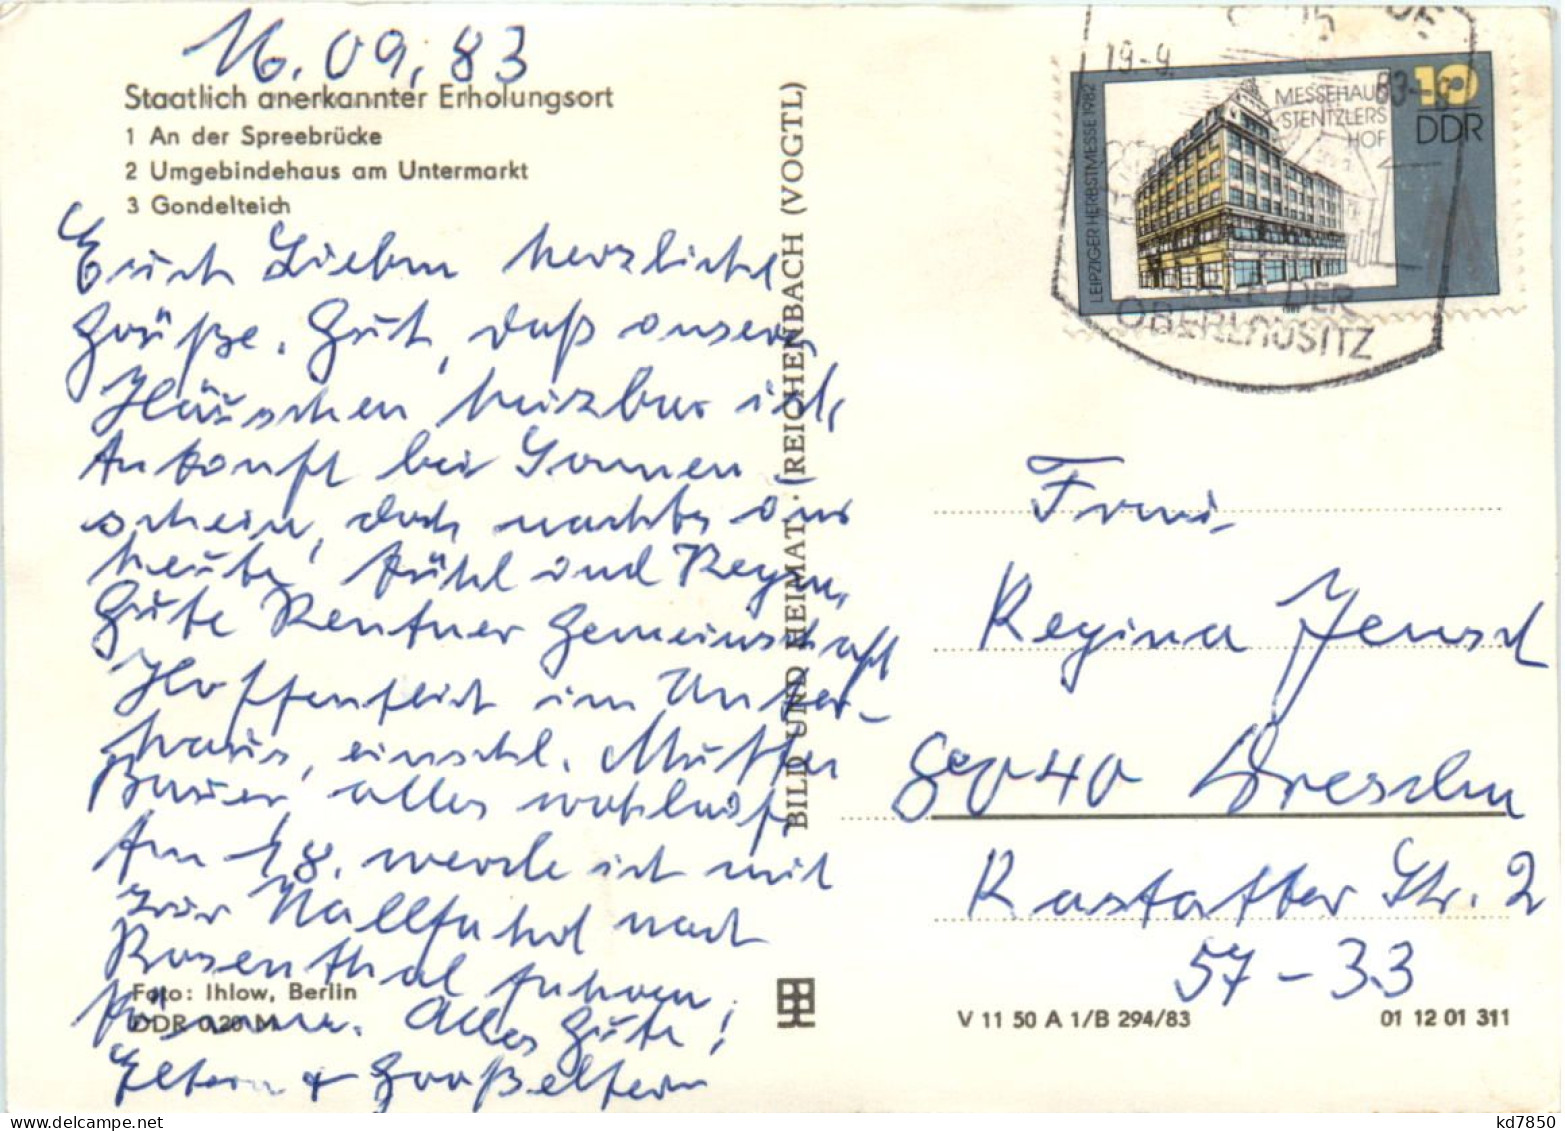 16.09.83
Staatlich anerkannter Erholungsort
1 An der Spreebrücke
2 Umgebindehaus am Untermarkt
3 Gondelteich
Euch Lieben herzliche
Grüße. Gut, daß unser
Häuschen heizbar ist,
Ankunft bei Sonnen-
schein, doch
heute kühl und Regen.
Gute Rentner Gemeinschaft
Hoffentlich im Unter-
haus, einschl. Mutter
Bauer alles wohlauf.
Am 18. werde ich mit
zur Wallfahrt nach
Rosenthal fahren
können. Alles Gute!
Eltern + Großeltern
Foto: Ihlow, Berlin
DDR 0,20 M
BILD UND HEIMAT · (REICHENBACH (VOGTL)
19.-9.
83-
LEIPZIGER HERBSTMESSE 1982
MESSEHAUS
STENTZLERS
HOF
10
DDR
PERLE DER
OBERLAUSITZ
Frau
Regina Jensch
8040 Dresden
Rastatter Str. 2
57-33
V 11 50 A 1/B 294/83
01 12 01 311
kd7850